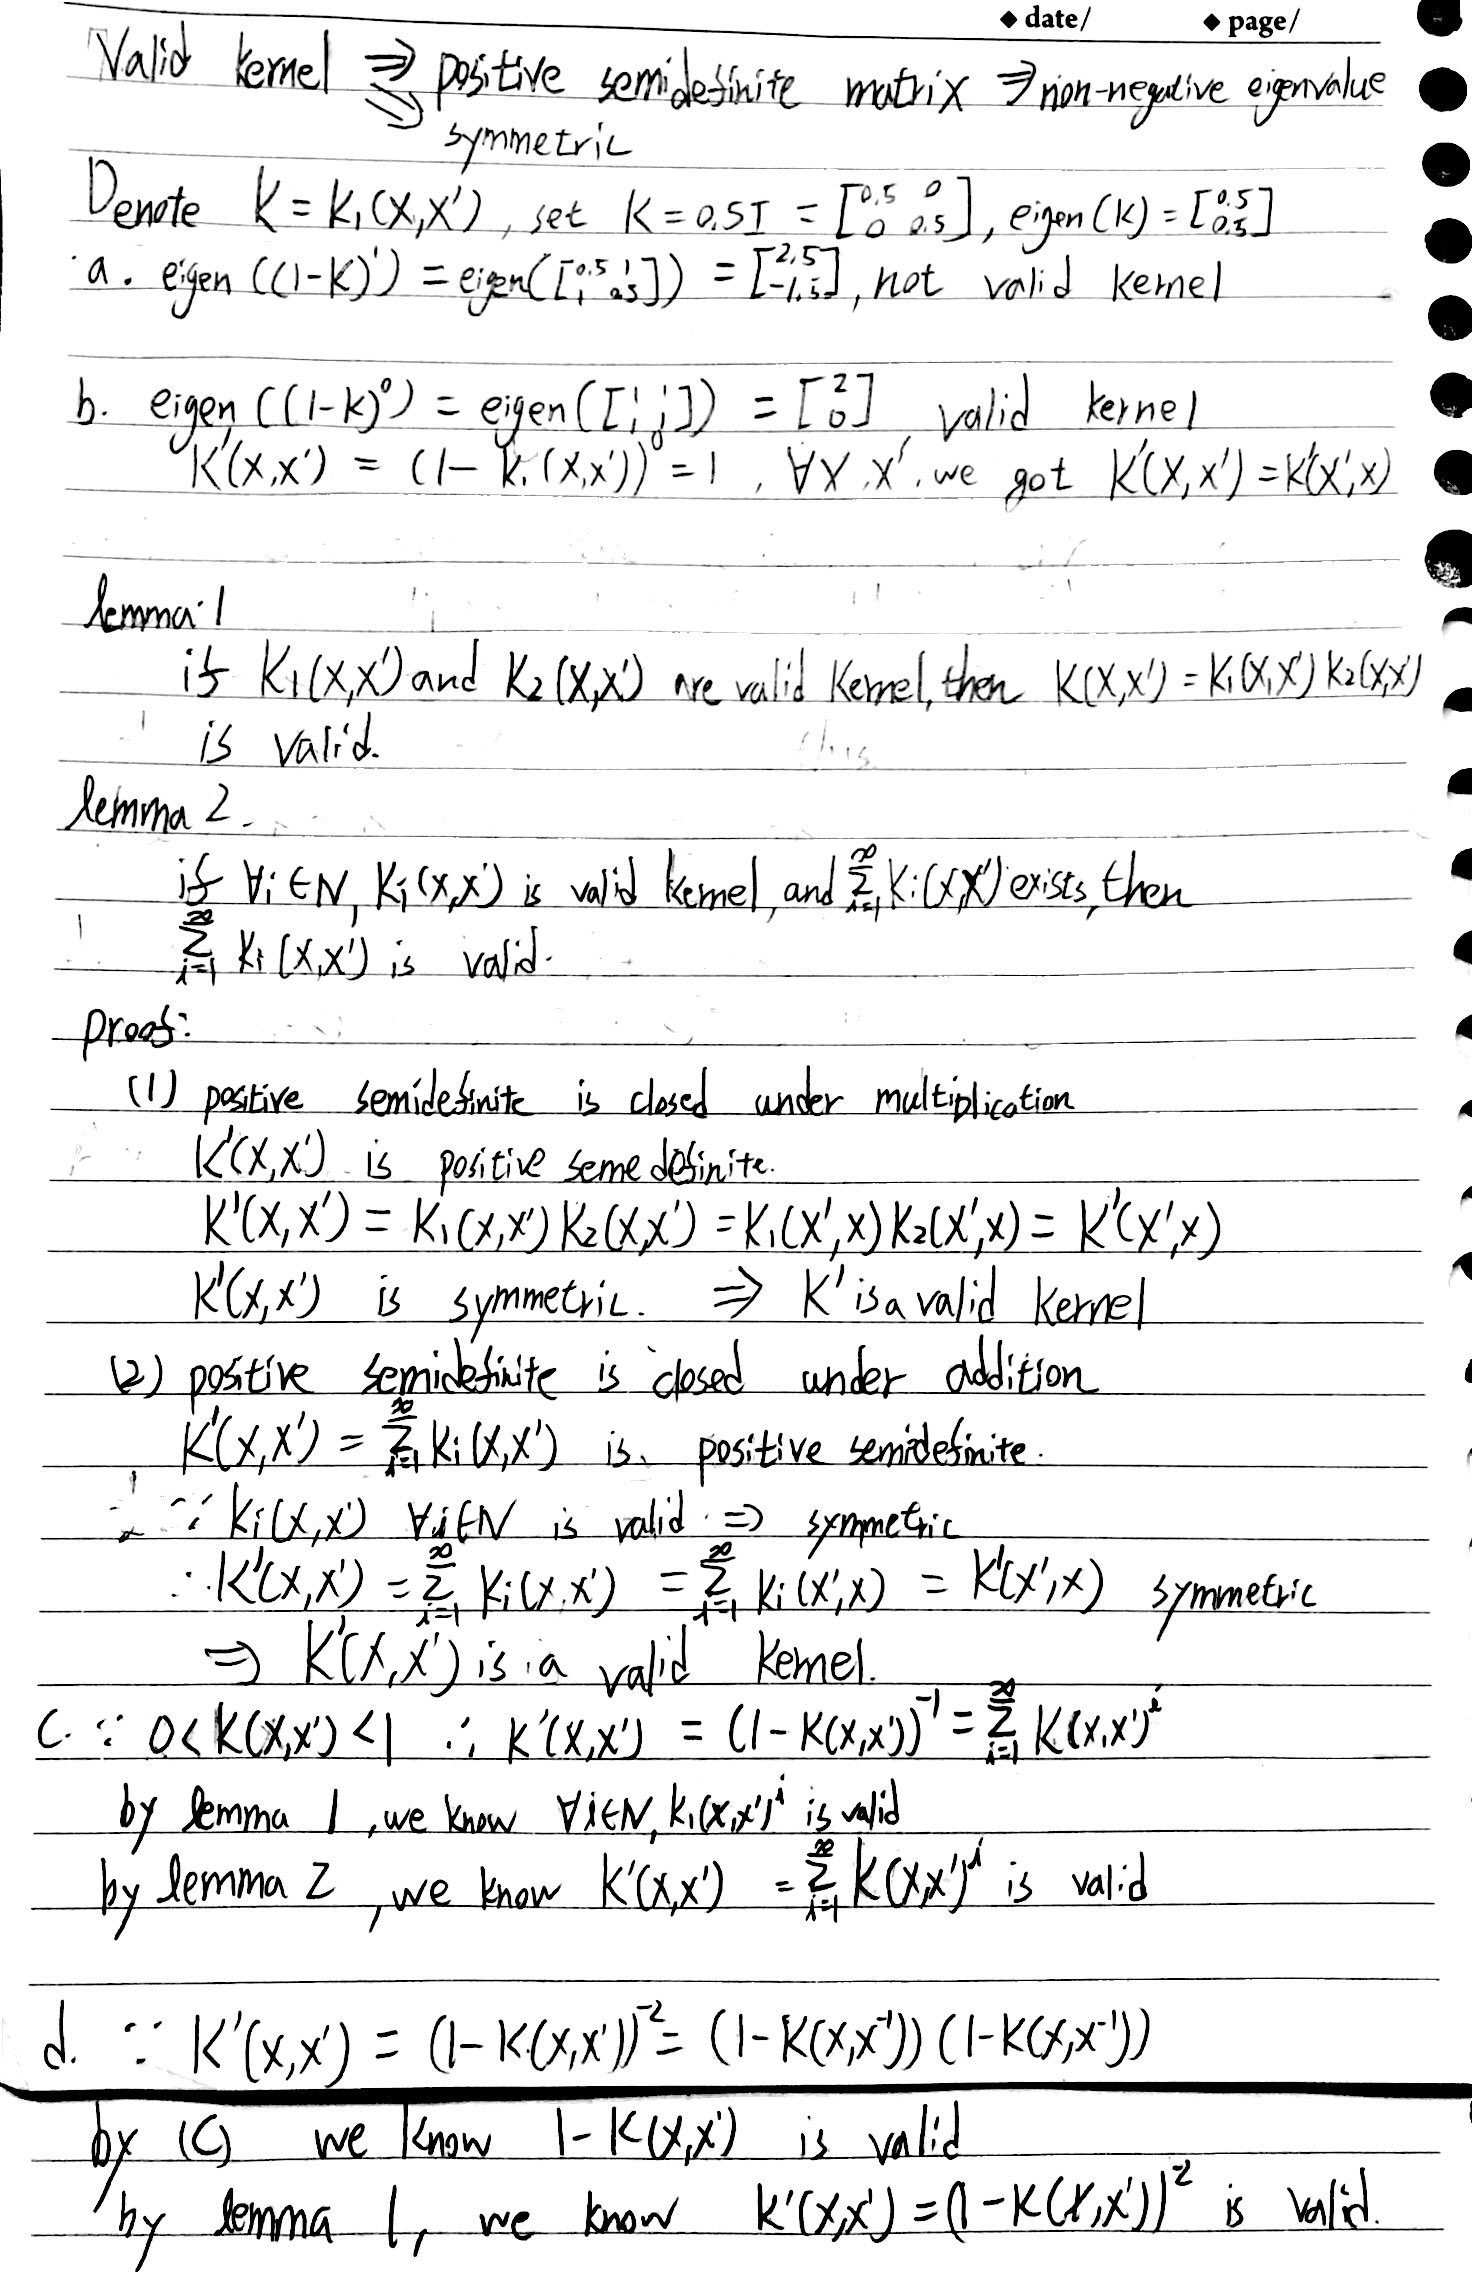 ◆ date/ ◆ page/
Valid kernel ⇒ positive semidefinite matrix ⇒ non-negative eigenvalue
⇘ symmetric
Denote K = K₁(X,X'), set K = 0.5I = [0.5 0; 0 0.5], eigen(K) = [0.5; 0.5]
a. eigen((1-K)¹) = eigen([0.5 1; 1 0.5]) = [2.5; -1.5], not valid kernel
b. eigen((1-K)⁰) = eigen([1 1; 1 1]) = [2; 0] valid kernel
K'(X,X') = (1-K₁(X,X'))⁰ = 1, ∀X,X', we got K'(X,X') = K'(X',X)
lemma 1
if K₁(X,X') and K₂(X,X') are valid kernel, then K(X,X') = K₁(X,X') K₂(X,X')
is valid.
lemma 2.
if ∀i∈N, Ki(X,X') is valid kernel, and ∑_{i=1}^{∞} Ki(X,X') exists, then
∑_{i=1}^{∞} Ki(X,X') is valid.
proof:
(1) positive semidefinite is closed under multiplication
K'(X,X') is positive semedefinite.
K'(X,X') = K₁(X,X') K₂(X,X') = K₁(X',X) K₂(X',X) = K'(X',X)
K'(X,X') is symmetric. ⇒ K' is a valid kernel
(2) positive semidefinite is closed under addition
K'(X,X') = ∑_{i=1}^{∞} Ki(X,X') is positive semidefinite.
∵ Ki(X,X') ∀i∈N is valid ⇒ symmetric
∴ K'(X,X') = ∑_{i=1}^{∞} Ki(X,X') = ∑_{i=1}^{∞} Ki(X',X) = K'(X',X) symmetric
⇒ K'(X,X') is a valid kernel.
C. ∵ 0<K(X,X')<1 ∴ K'(X,X') = (1-K(X,X'))⁻¹ = ∑_{i=1}^{∞} K(X,X')ⁱ
by lemma 1, we know ∀i∈N, K₁(X,X')ⁱ is valid
by lemma 2, we know K'(X,X') = ∑_{i=1}^{∞} K(X,X')ⁱ is valid
d. ∵ K'(X,X') = (1-K(X,X'))⁻² = (1-K(X,X⁻¹)) (1-K(X,X⁻¹))
by (C) we know 1-K(X,X') is valid
by lemma 1, we know K'(X,X') = (1-K(X,X'))⁻² is valid.